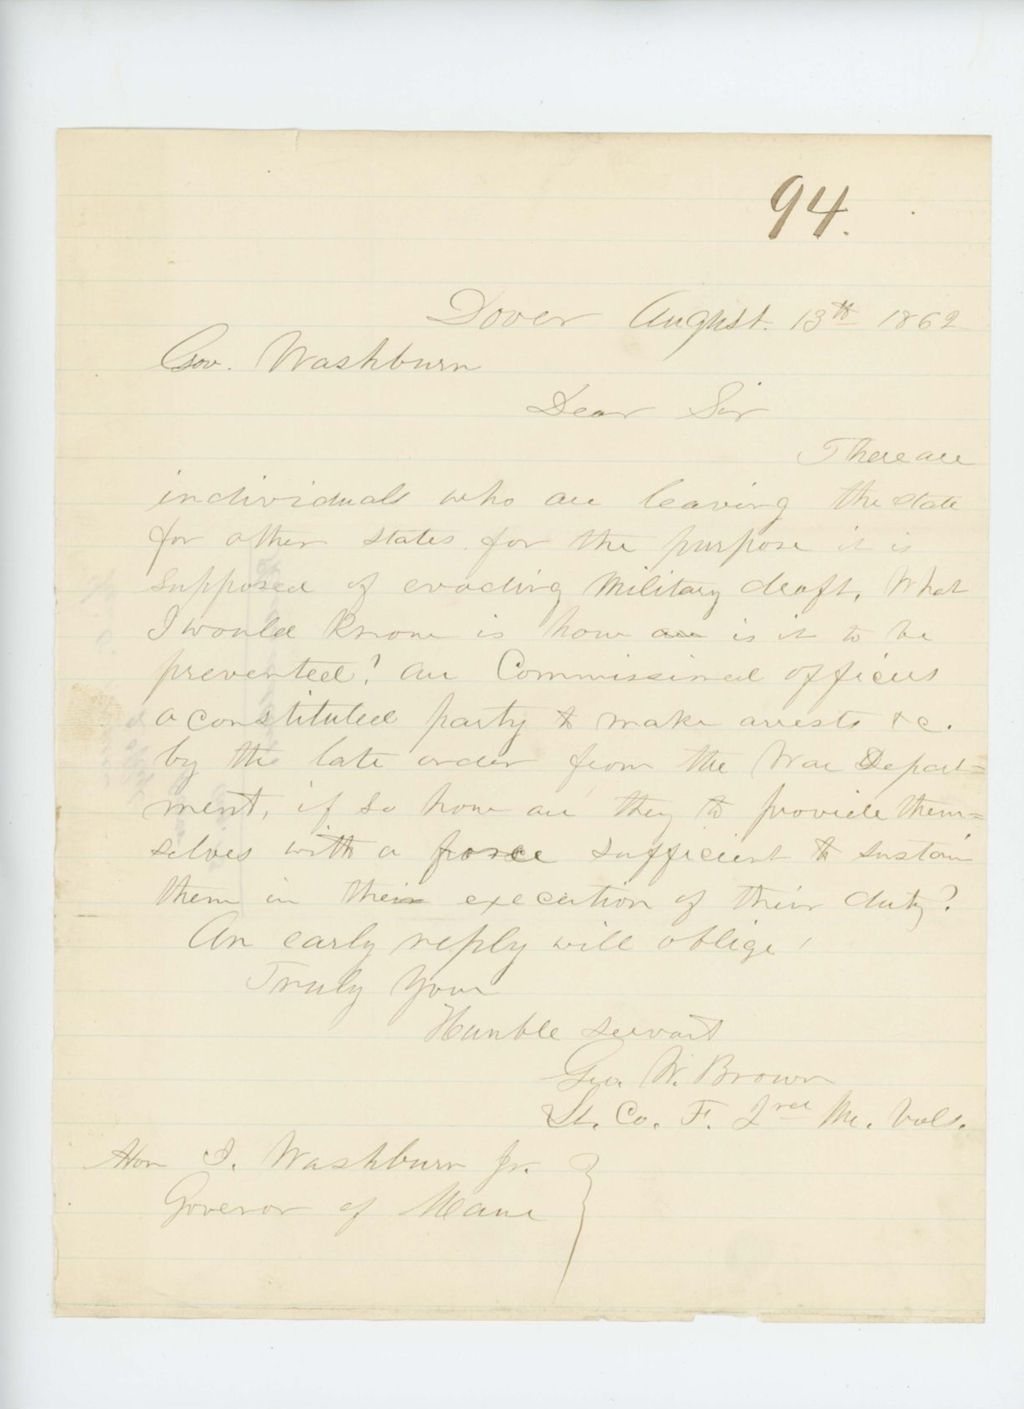 94.
Dover August. 13th 1862
Gov. Washburn
Dear Sir
There are
individuals who are leaving the state
for other states for the purpose it is
supposed of evading Military draft. What
I would know is how are is it to be
prevented? are Commissioned officers
a constituted party to make arrests &c.
by the late order from the War Depart=
ment, if so how are they to provide them=
selves with a force sufficient to sustain
them in their execution of their duty?
An early reply will oblige,
Truly Your
Humble servant
Geo. W. Brown
Lt. Co. F. 2nd Me. Vols.
Hon I. Washburn Jr.
Goveror of Maine